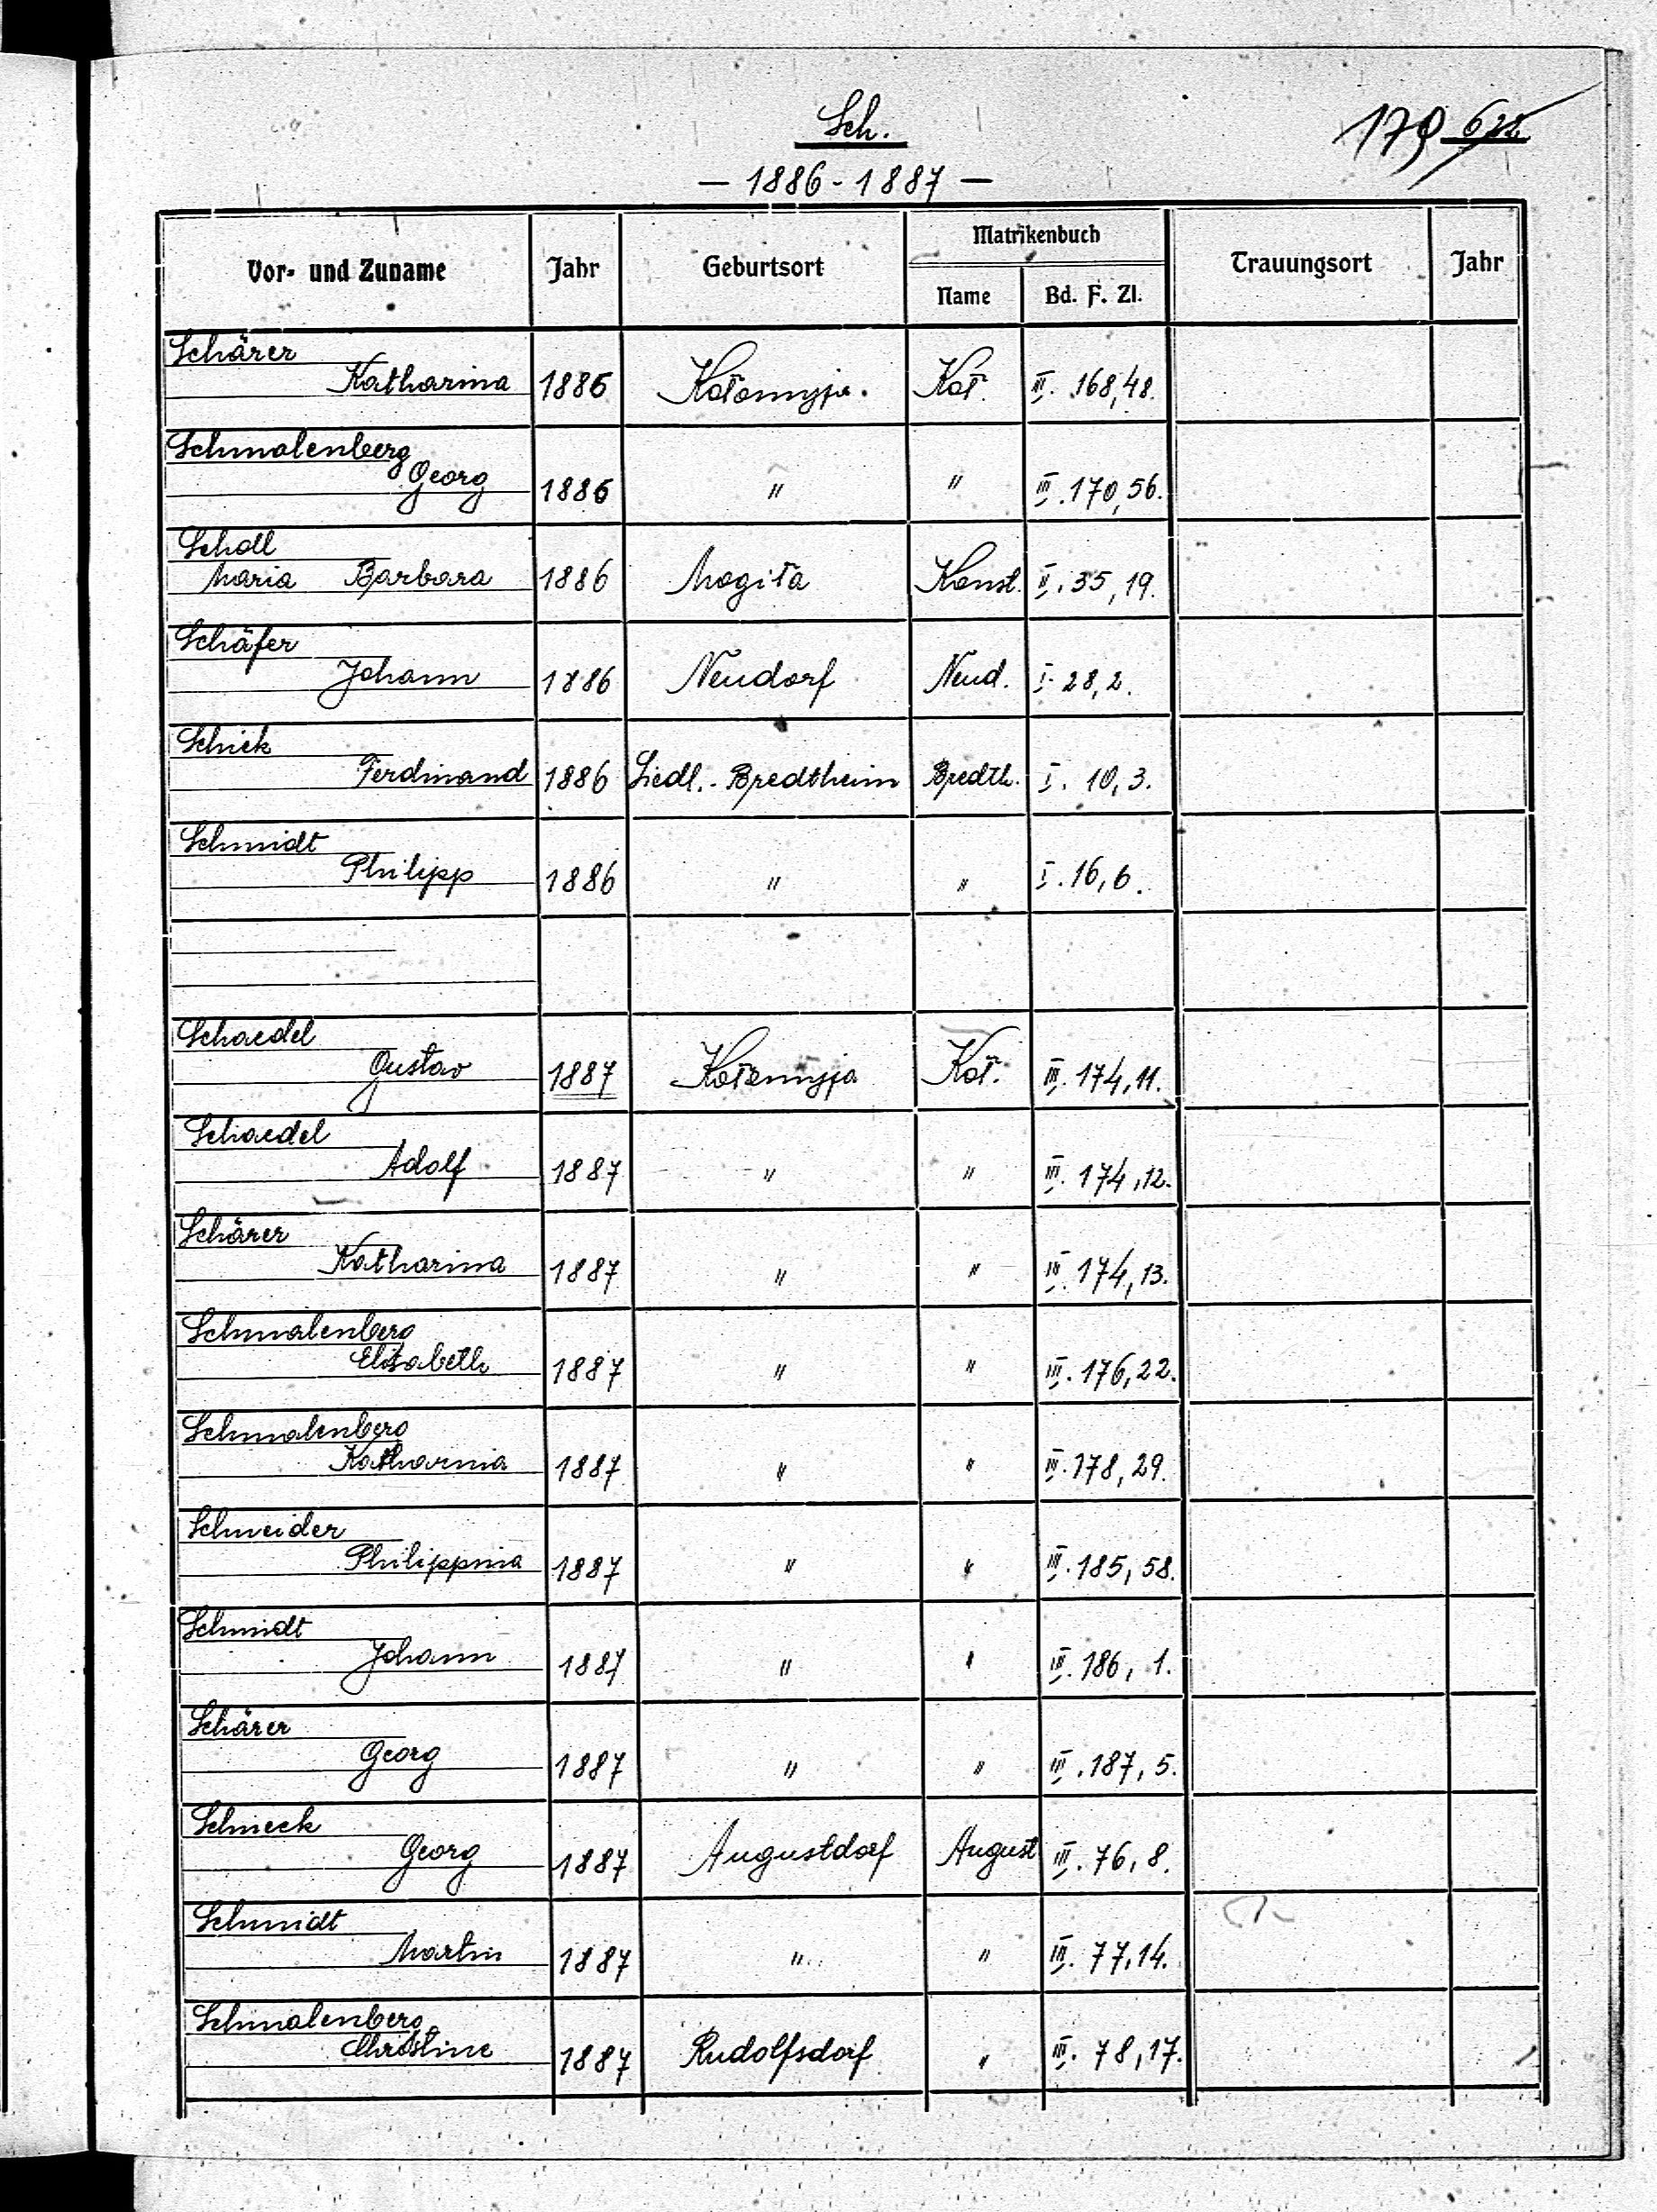 Sch.
179 622
— 1886 - 1887 —
Vor- und Zuname Jahr Geburtsort Matrikenbuch Trauungsort Jahr
Name Bd. F. Zl.
Schärer
Katharina 1886 Kołomyja. Koł. III. 168,48.
Schmalenberg
Georg 1886 " " III. 170,56.
Scholl
Maria Barbara 1886 Mogiła Konst. II. 35,19.
Schäfer
Johann 1886 Neudorf Neud. I. 28,2.
Schick
Ferdinand 1886 Siedl. - Bredtheim Bredth. I. 10,3.
Schmidt
Philipp 1886 " " I. 16,6.
Schaedel
Gustav 1887 Kołomyja Koł. III. 174,11.
Schaedel
Adolf 1887 " " III. 174,12.
Schärer
Katharina 1887 " " III. 174,13.
Schmalenberg
Elisabeth 1887 " " III. 176,22.
Schmalenberg
Katharina 1887 " " III. 178,29.
Schneider
Philippina 1887 " " III. 185,58.
Schmidt
Johann 1887 " " III. 186, 1.
Schärer
Georg 1887 " " III. 187, 5.
Schneck
Georg 1887 Augustdorf August III. 76,8.
Schmidt
Martin 1887 " " III. 77,14.
Schmalenberg
Christine 1887 Rudolfsdorf " III. 78,17.